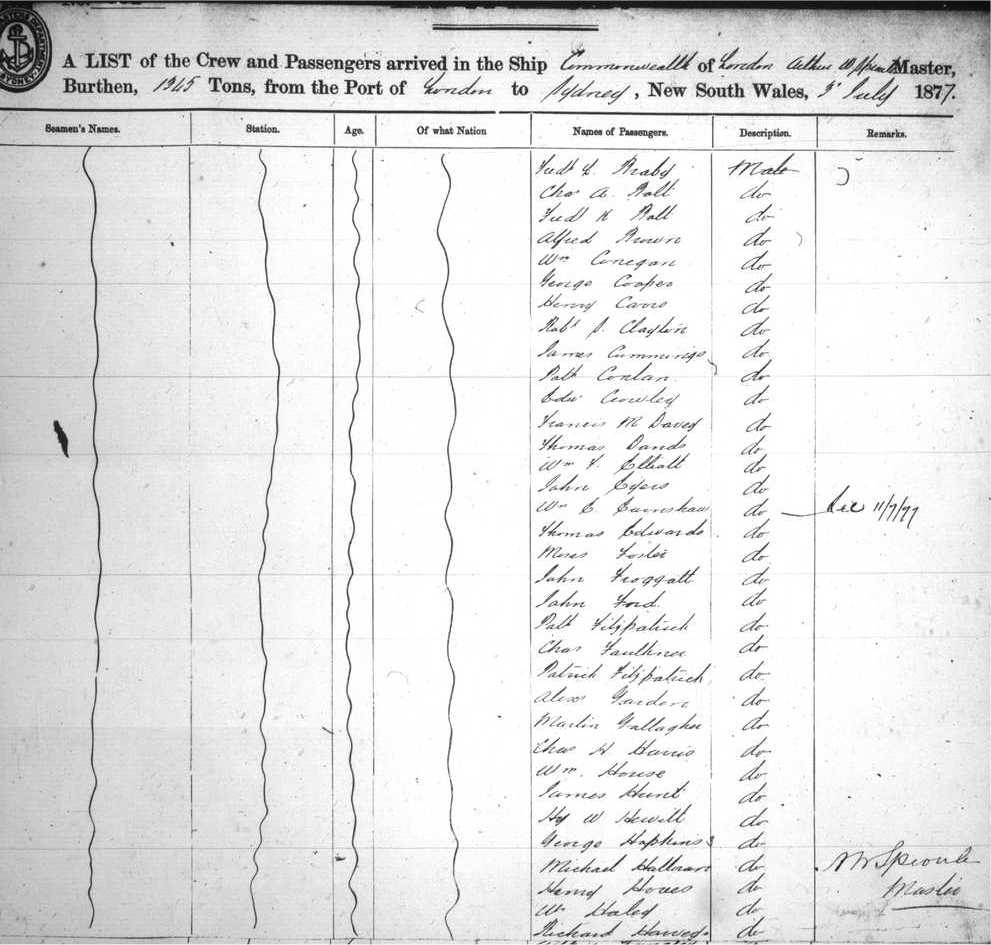 A LIST of the Crew and Passengers arrived in the Ship Commonwealth of London Arthur W Master,
Burthen, 1345 Tons, from the Port of London to Sydney, New South Wales, 3d July 1877.
Seamen's Names. Station. Age. Of what Nation Names of Passengers. Description. Remarks.
Fredk Braby Male
Chas A. Ball do
Fredk H Ball do
Alfred Brown do
Wm Conegan do
George Cooper do
Henry do
Robt S. Clayton do
James Cummings do
Patk Conlan do
Edw Crowley do
Francis M Davey do
Thomas Dands do
Wm F. Elliott do
John Eyers do
Wm C Earnshaw do 11/7/77
Thomas Edwards do
Moses Foster do
John Froggatt do
John Ford do
Patk Fitzpatrick do
Chas Faulkner do
Patrick Fitzpatrick do
Alexr Gardon do
Martin Gallagher do
Chas H Harris do
Wm. House do
James Hunt do
Hy W Hewitt do
George Hopkins do
Michael do A W Sproule
Henry do Master
Wm Haley do
Richard Harvey do